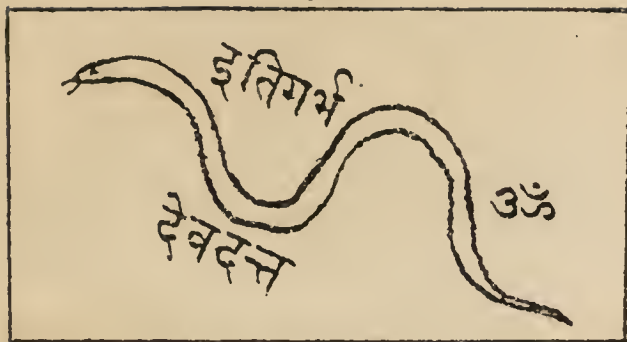 इतिगर्भ
देवदत्त
ॐ